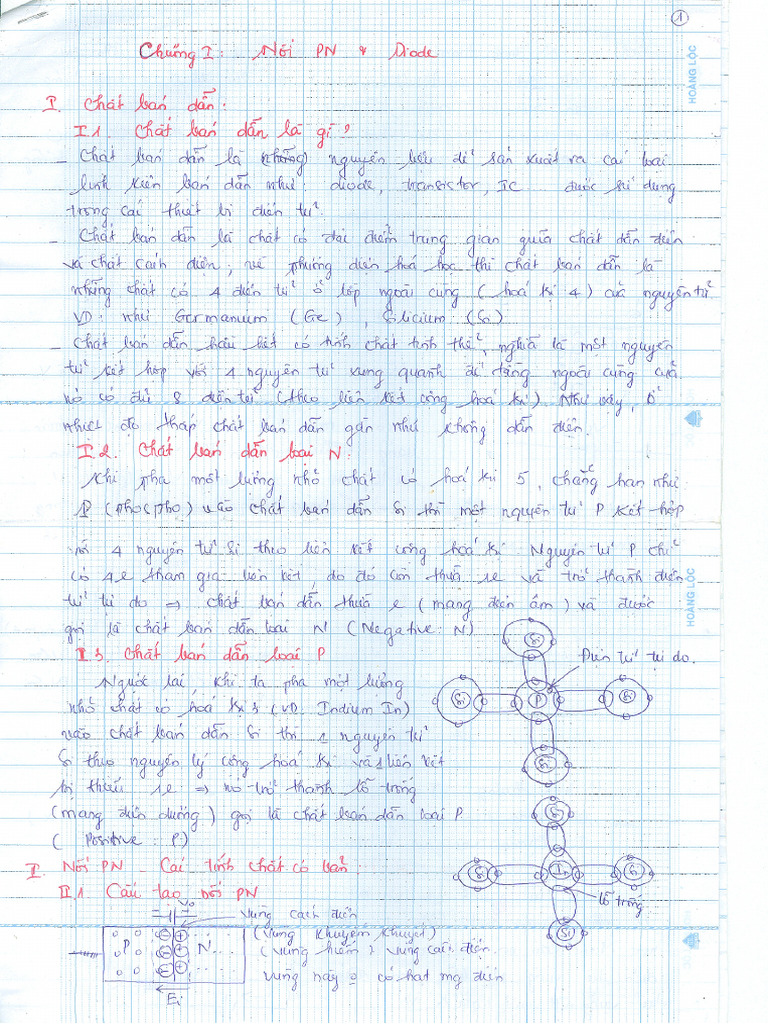 1
Chương I: Nối PN & Diode
HOÀNG LỘC
I. Chất bán dẫn:
I.1. Chất bán dẫn là gì?
_ Chất bán dẫn là (những) nguyên liệu để sản xuất ra các loại
linh kiện bán dẫn như: diode, transistor, IC được sử dụng
trong các thiết bị điện tử.
_ Chất bán dẫn là chất có đặc điểm trung gian giữa chất dẫn điện
và chất cách điện, về phương diện hoá học thì chất bán dẫn là
những chất có 4 điện tử ở lớp ngoài cùng (hoá trị 4) của nguyên tử
VD: như Germanium (Ge), Silicium (Si)
_ Chất bán dẫn hầu hết có tính chất tinh thể, nghĩa là một nguyên
tử kết hợp với 4 nguyên tử xung quanh để tầng ngoài cùng của
nó có đủ 8 điện tử (theo liên kết cộng hoá trị) Như vậy, ở
nhiệt độ thấp chất bán dẫn gần như không dẫn điện.
I.2. Chất bán dẫn loại N:
Khi pha một lượng nhỏ chất có hoá trị 5, chẳng hạn như
P (phôtpho) vào chất bán dẫn Si thì một nguyên tử P kết hợp
với 4 nguyên tử Si theo liên kết cộng hoá trị. Nguyên tử P chỉ
có 4e tham gia liên kết, do đó còn thừa 1e và trở thành điện
tử tự do => chất bán dẫn thừa e (mang điện âm) và được
gọi là chất bán dẫn loại N (Negative: N)
HOÀNG LỘC
I.3. Chất bán dẫn loại P
Si
Điện tử tự do.
Si P Si
Si
Ngược lại, khi ta pha một lượng
nhỏ chất có hoá trị 3 (VD Indium In)
vào chất bán dẫn Si thì 1 nguyên tử
Si theo nguyên lý cộng hoá trị và 1 liên kết
bị thiếu 1e => nó trở thành lỗ trống
(mang điện dương) gọi là chất bán dẫn loại P
(Positive: P)
Si
Si In Si
lỗ trống
Si
II. Nối PN _ Các tính chất cơ bản
II.1 Cấu tạo nối PN
V₀
Vùng cách điện
P N
(Vùng khuyếm khuyết)
(Vùng hiếm) vùng cách điện.
Vùng này có hạt mg điện
Ei